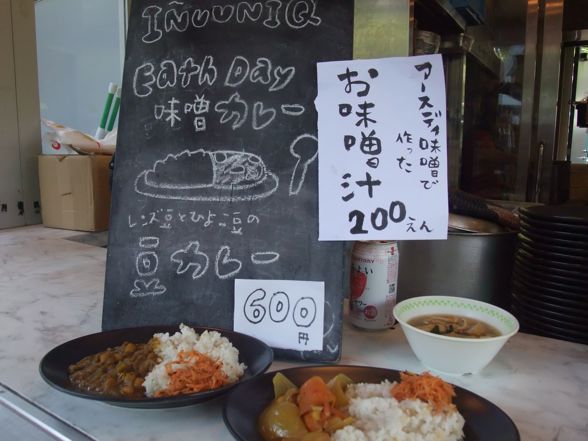 INUUNIQ
Eath Day
味噌カレー
レンズ豆とひよこ豆の
豆カレー
600
円
アースディ味噌で
作った
お味噌汁
200えん